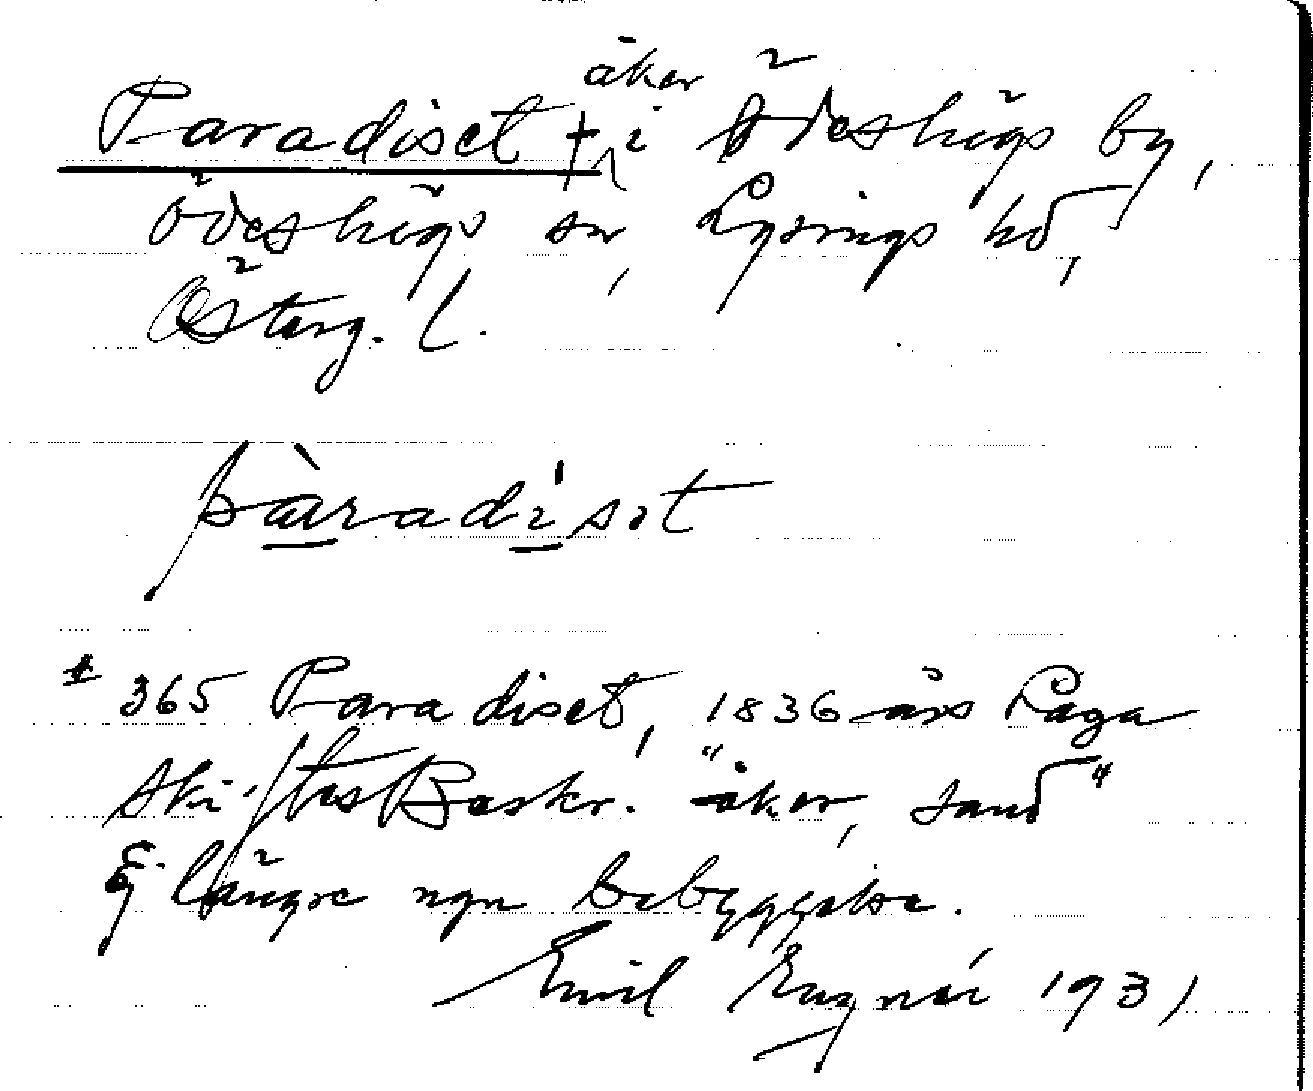 Paradiset † åker i Ödeshögs by,
Ödeshögs sn, Lysings hd,
Österg. l.
pàradi'sət
365 Paradiset, 1836 års Laga
skiftes Beskr. "åker, sand"
Ej längre ngn bebyggelse.
Emil 1931